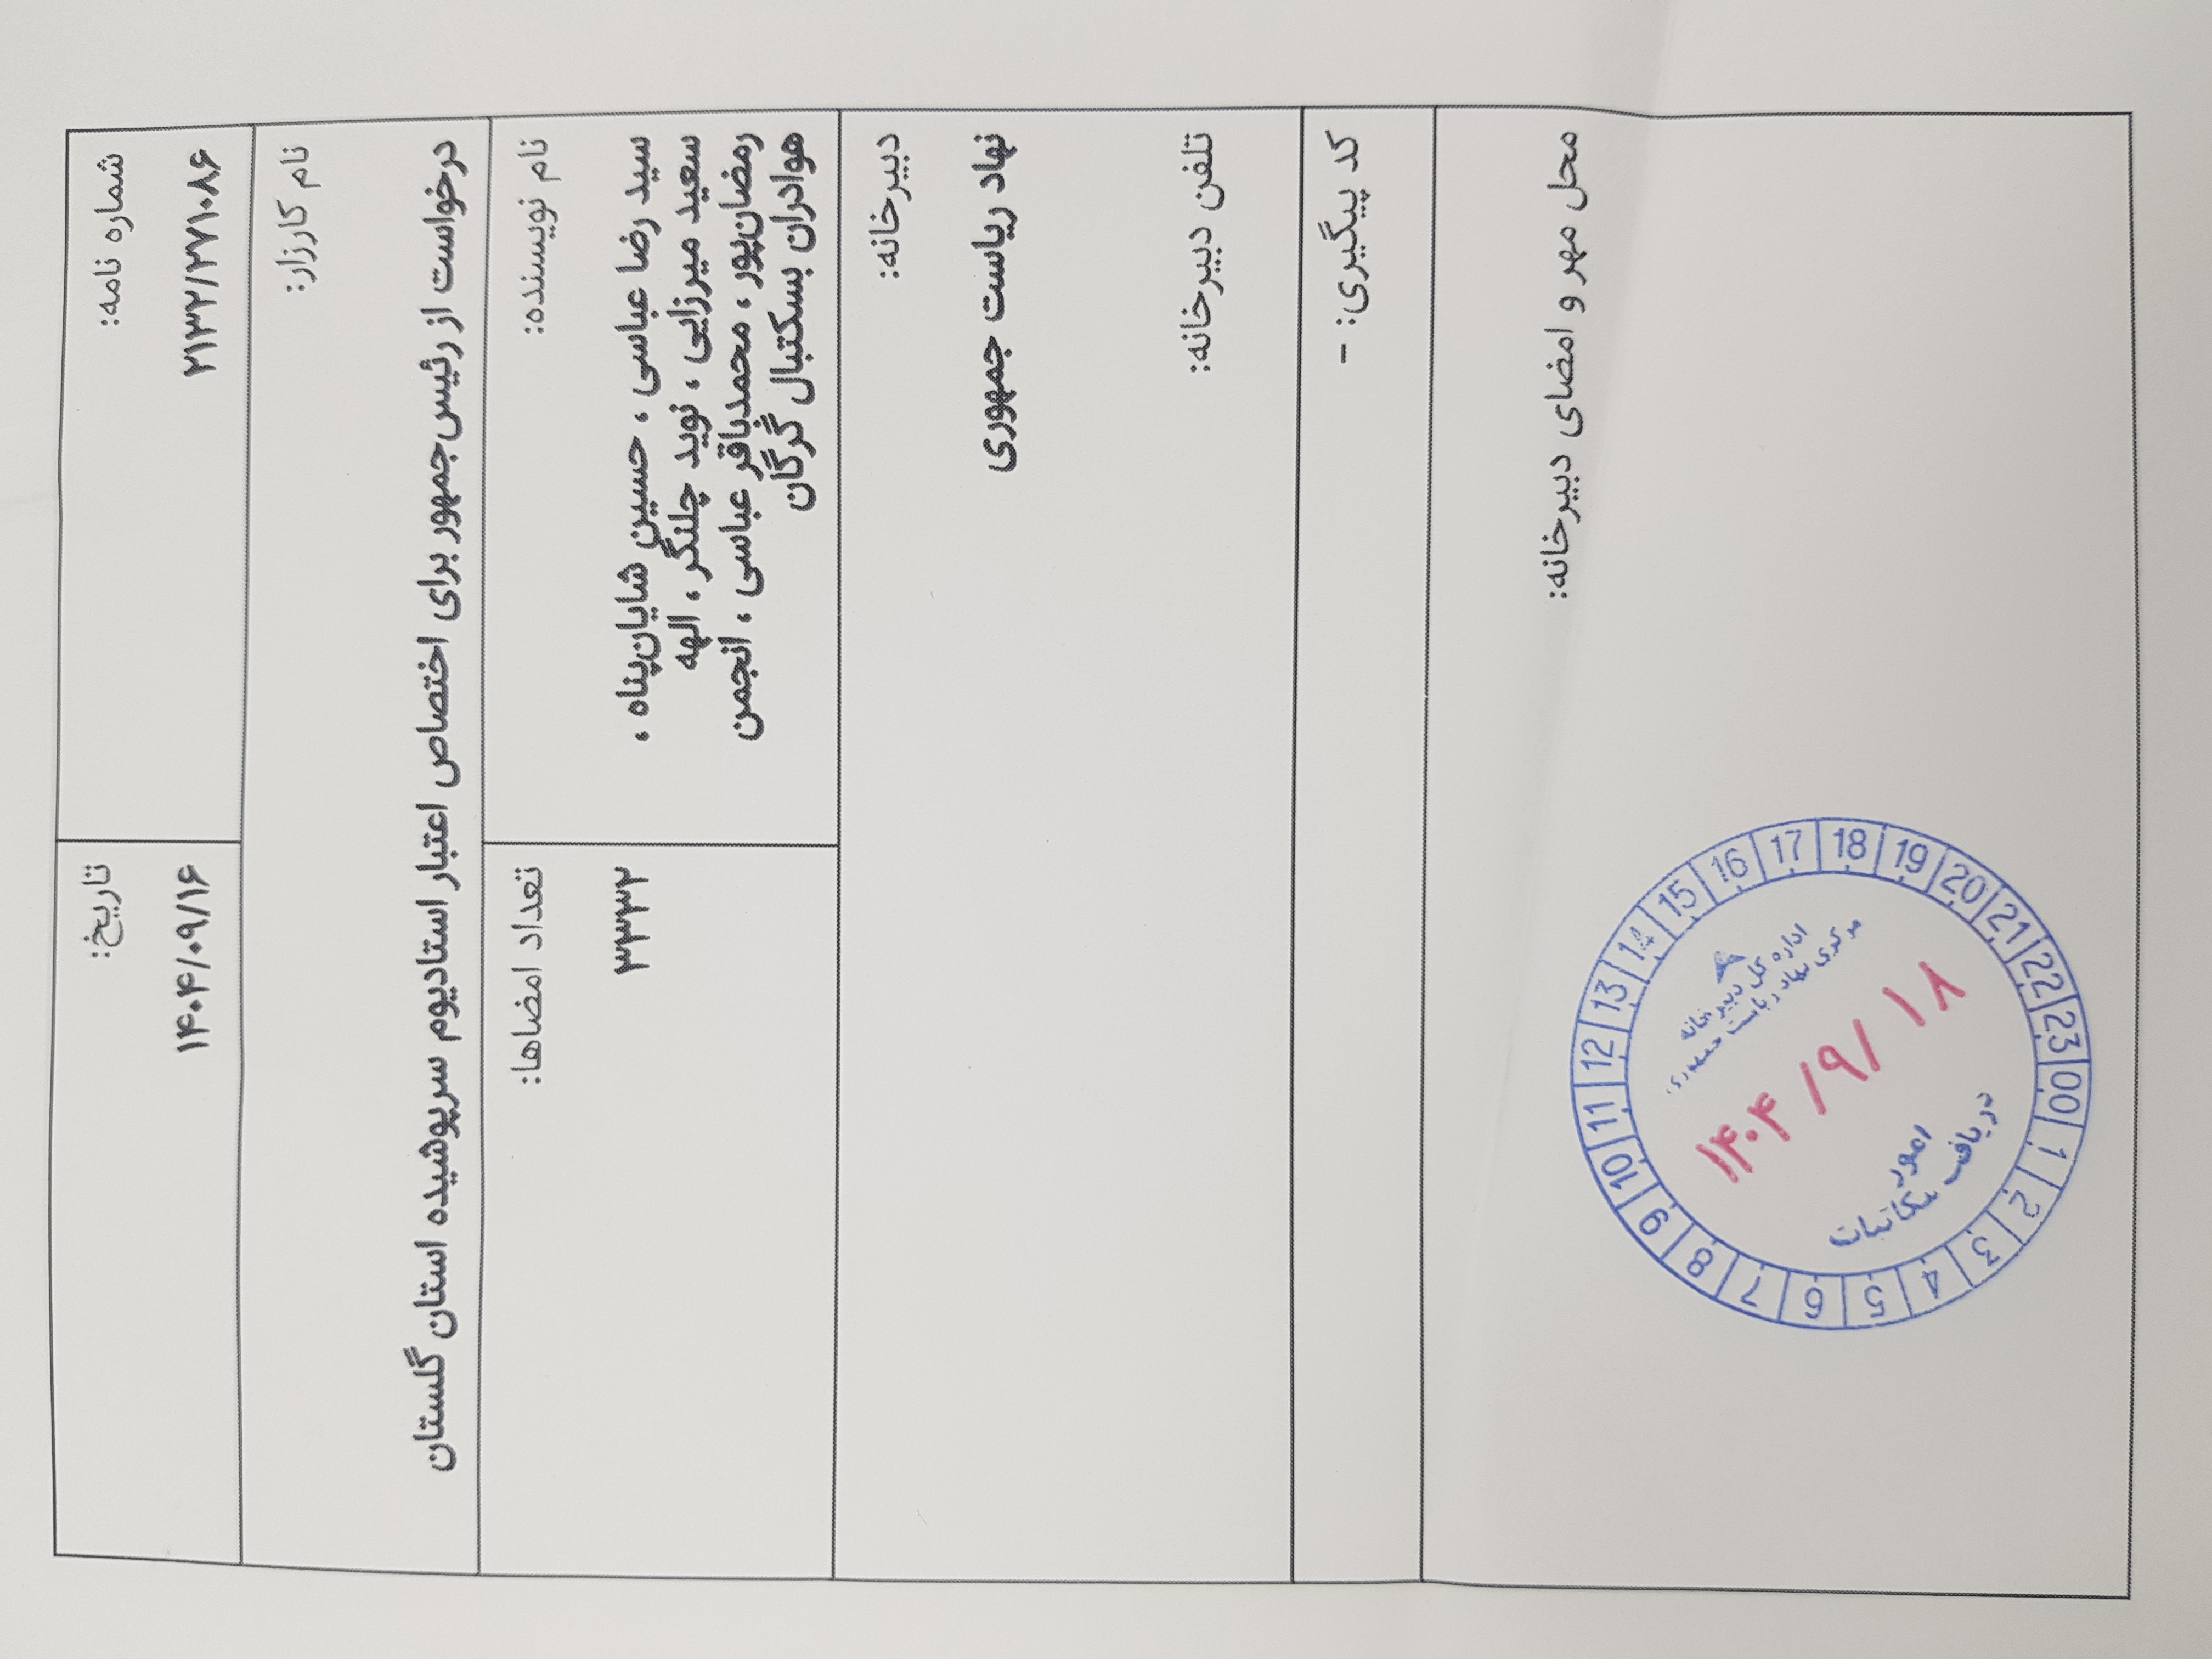 شماره نامه:
۲۱۳۲/۲۷۱۰۸۶
تاریخ:
۱۴۰۴/۰۹/۱۶
نام کارزار:
درخواست از رئیس‌جمهور برای اختصاص اعتبار استادیوم سرپوشیده استان گلستان
نام نویسنده:
سید رضا عباسی ، حسین شایان‌پناه ،
سعید میرزایی ، نوید چلنگر ، الهه
رمضان‌پور ، محمدباقر عباسی ، انجمن
هواداران بسکتبال گرگان
تعداد امضاها:
۳۳۳۲
دبیرخانه:
نهاد ریاست جمهوری
تلفن دبیرخانه:
کد پیگیری: -
محل مهر و امضای دبیرخانه:
اداره کل دبیرخانه
مرکزی نهاد ریاست جمهوری
۱۴۰۴/۹/۱۸
امور
دریافت مکاتبات
00 1 2 3 4 5 6 7 8 9 10 11 12 13 14 15 16 17 18 19 20 21 22 23